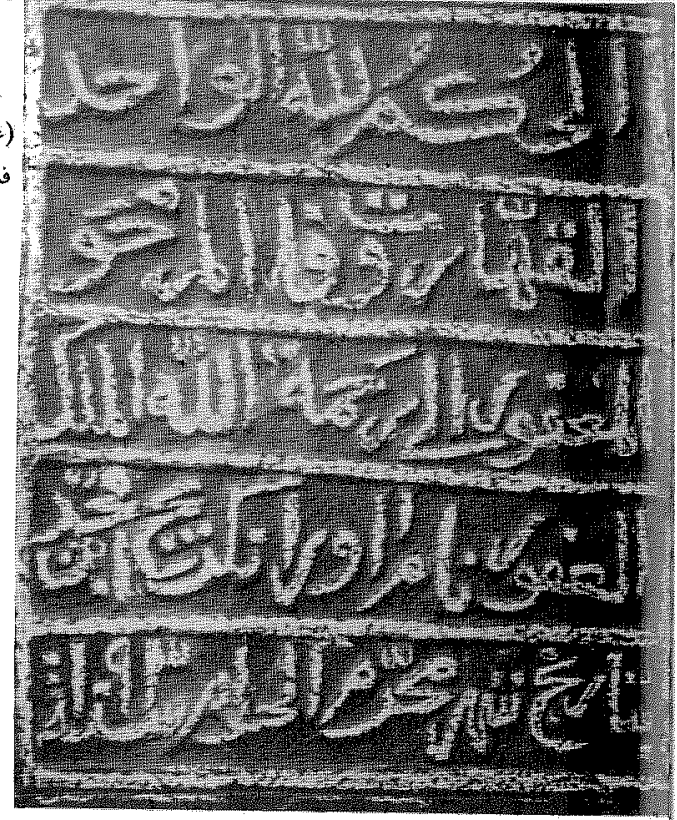 الحكم لله الواحد
القهار وفات المرحوم
المغفور الى رحمة الله الملك
الغفور محمد بن
تاريخ شهر محرم الحرام سنة